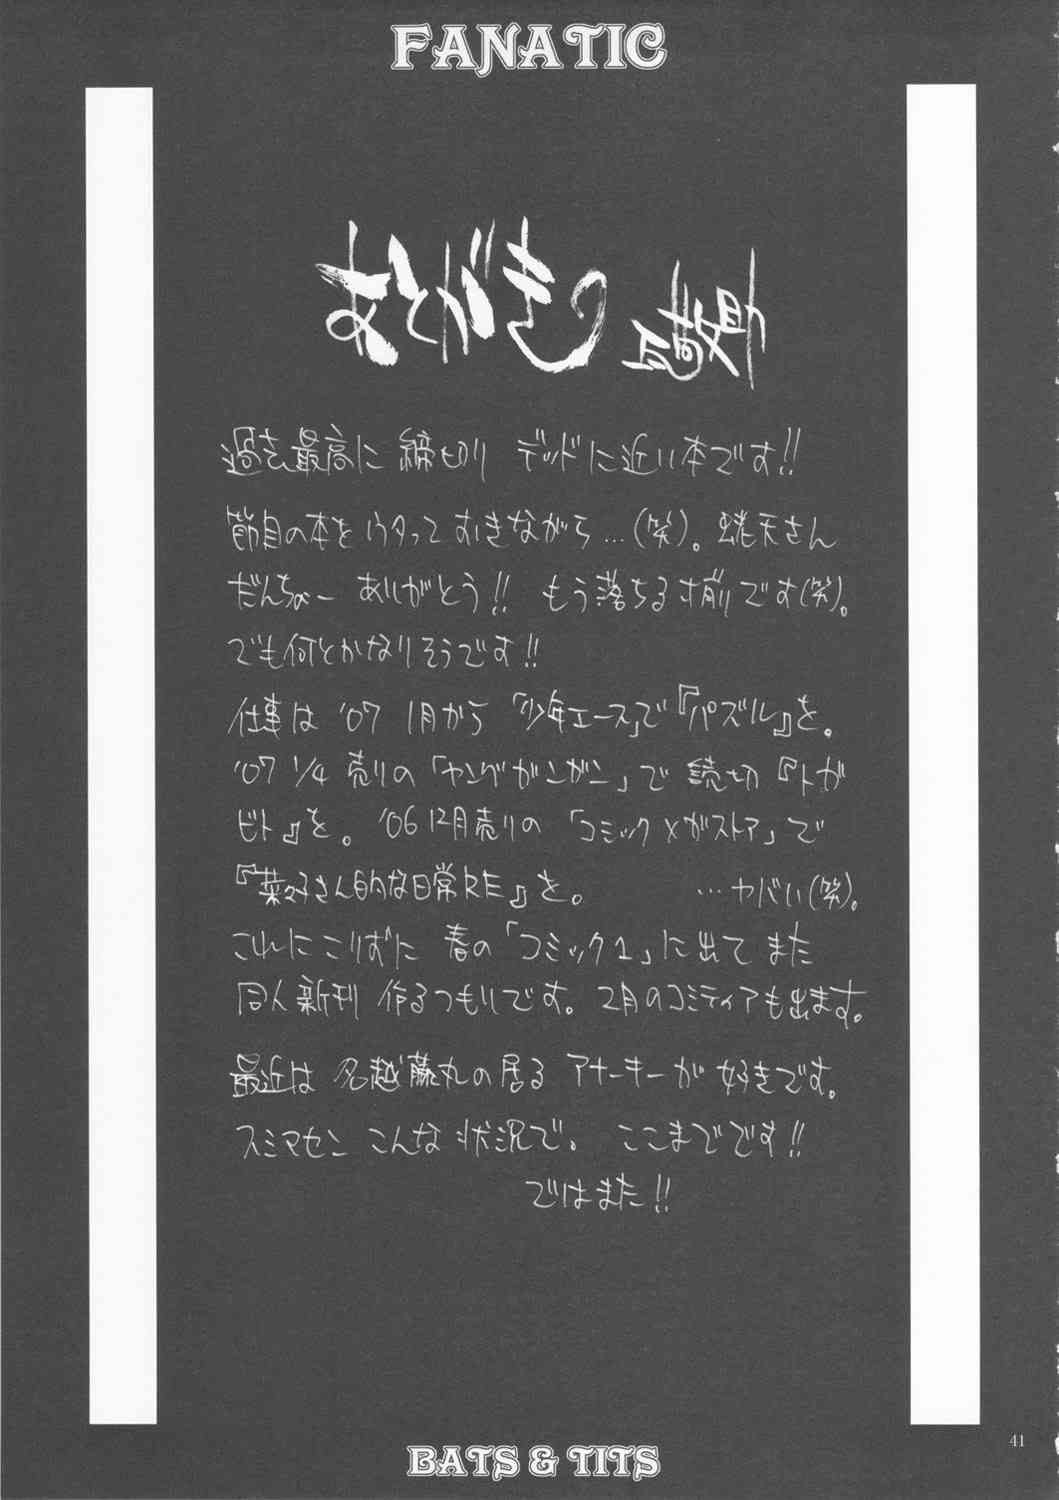 FANATIC
あとがき 瓦敬助
過去最高に 締切り デッドに近い本です!!
節目の本を ウタって おきながら…(笑)。蛯天さん
だんちょー ありがとう!! もう落ちる寸前です(笑)。
でも何とかなりそうです!!
仕事は '07 1月から 「少年エース」で『パズル』を。
'07 1/4 売りの「ヤングガンガン」で 読切『トガ
ビト』を。 '06 12月売りの 「コミックメガストア」で
『菜々子さん的な日常RE』を。 …ヤバい(笑)。
これにこりずに 春の「コミック1」に出て また
同人新刊 作るつもりです。2月のコミティアも出ます。
最近は 名越藤丸の居る アナーキーが 好きです。
スミマセン こんな 状況で。 ここまでです!!
ではまた!!
BATS & TITS
41